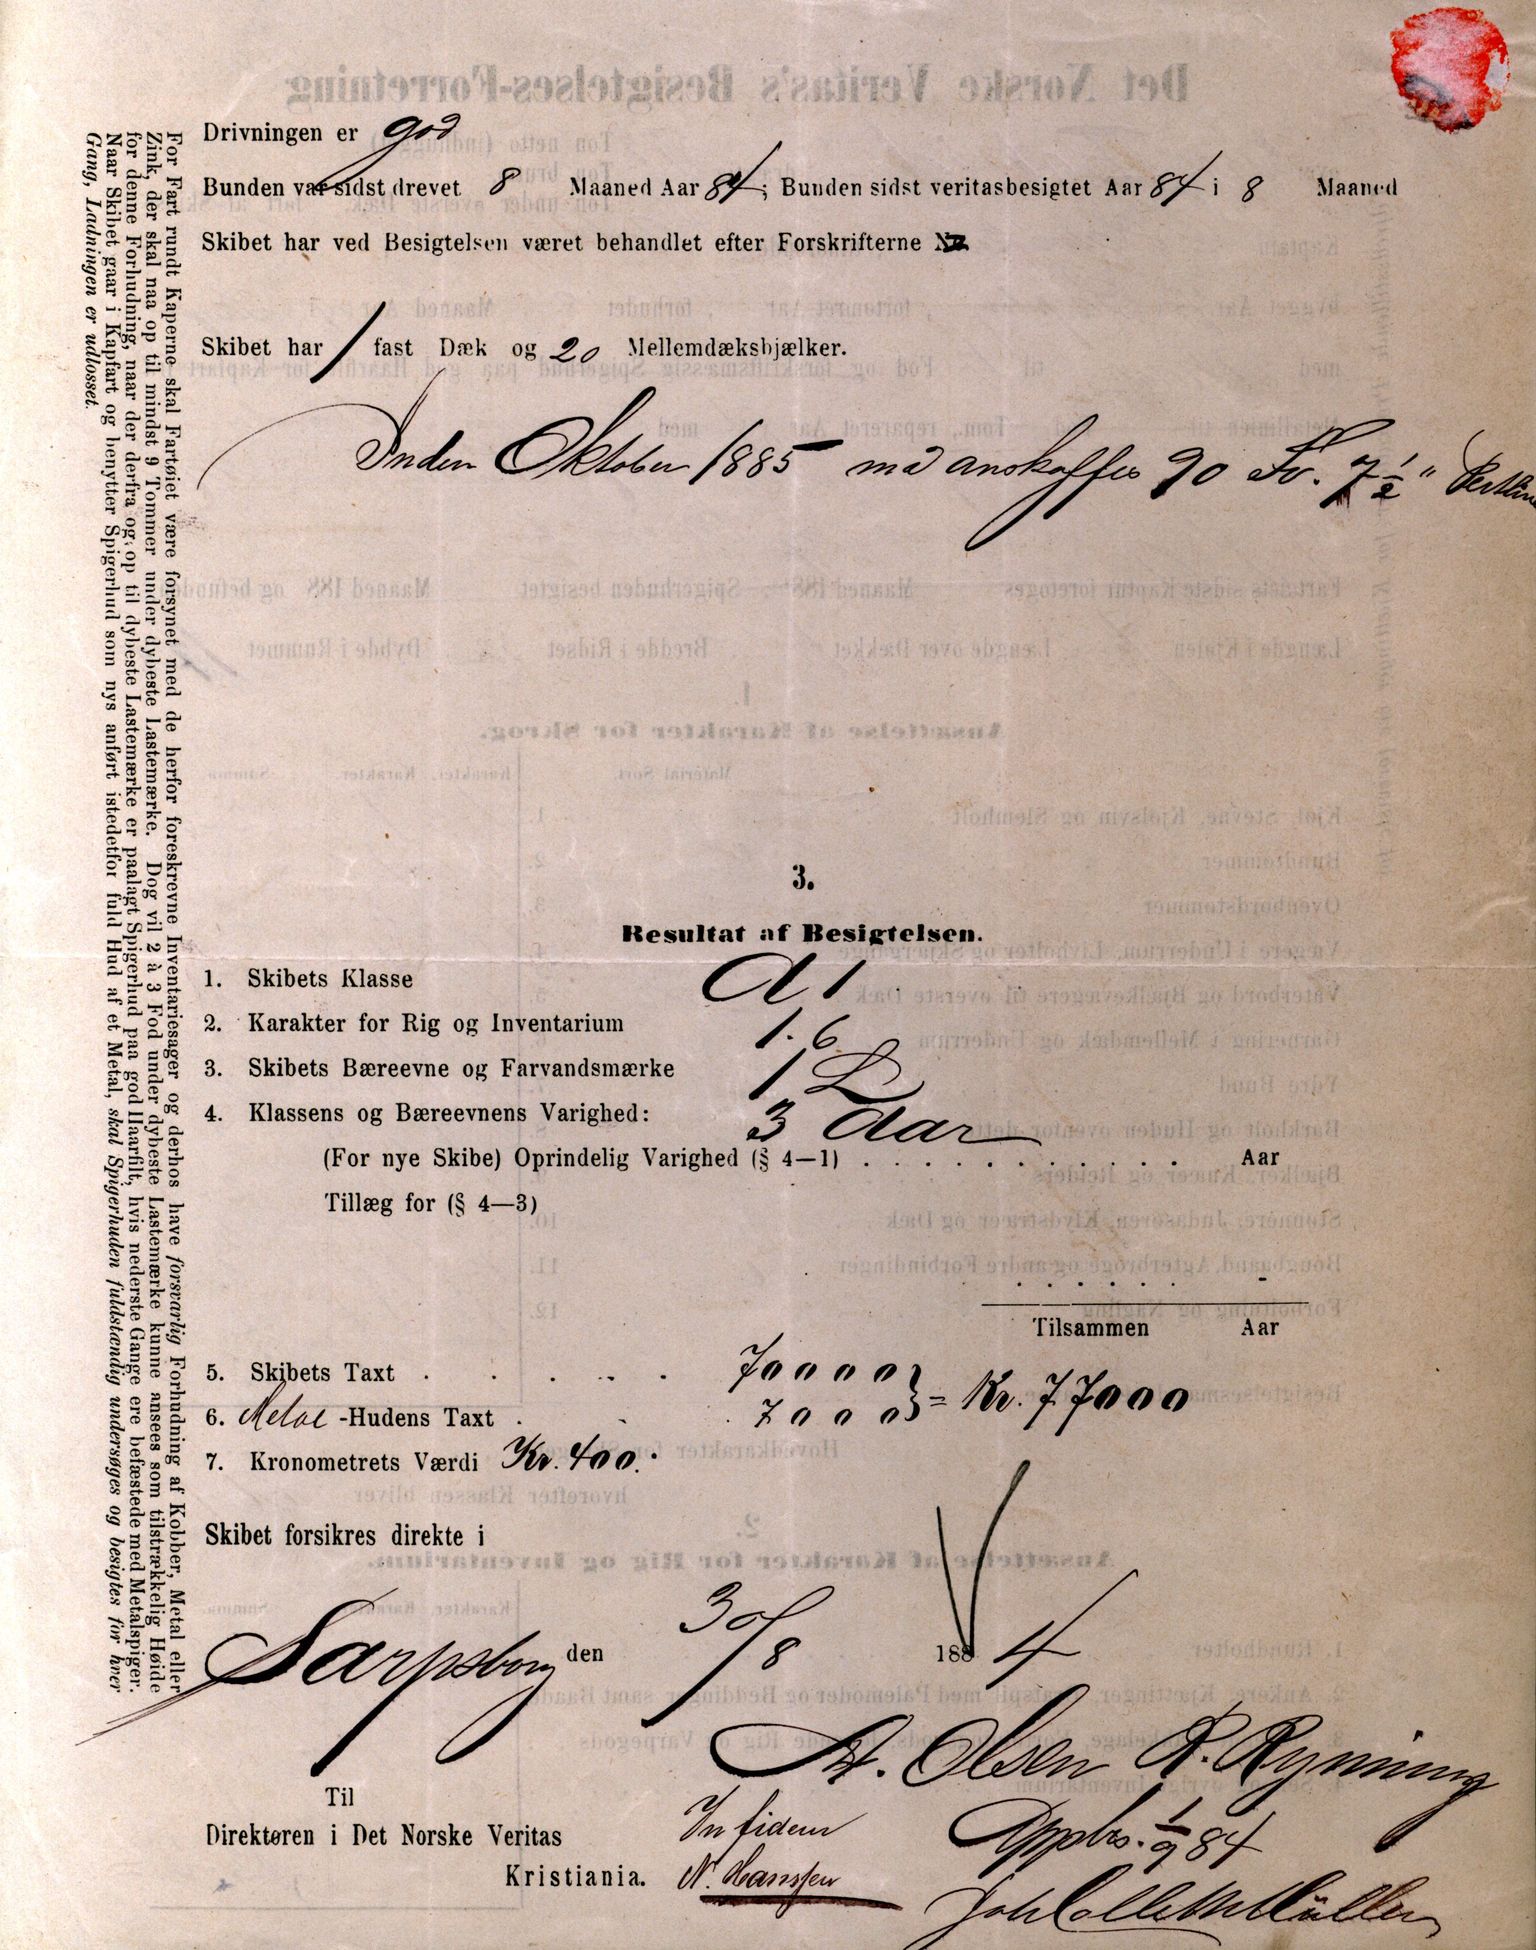 Drivningen er god
Bunden var sidst drevet 8 Maaned Aar 84; Bunden sidst veritasbesigtet Aar 84 i 8 Maaned
Skibet har ved Besigtelsen været behandlet efter Forskrifterne
Skibet har 1 fast Dæk og 20 Mellemdæksbjælker.
Inden Oktober 1885 må anskaffes 90 Fv. 7 1/2"
3.
Resultat af Besigtelsen.
1. Skibets Klasse A 1
2. Karakter for Rig og Inventarium 1.6
3. Skibets Bæreevne og Farvandsmærke 1 L
4. Klassens og Bæreevnens Varighed: 3 Aar
(For nye Skibe) Oprindelig Varighed (§ 4—1) . . . . . . . . . . . Aar
Tillæg for (§ 4—3)
Tilsammen Aar
5. Skibets Taxt . . . . . 70000
6. -Hudens Taxt . . . 7000 } = Kr. 77000
7. Kronometrets Værdi Kr. 400.
Skibet forsikres direkte i
Sarpsborg den 30/8 1884
A. Olsen R. Rynning
Til
Direktøren i Det Norske Veritas
Kristiania.
In fidem
N. Hanssen
Appbs. 1/9 84
Joh Collett Müller
For Fart rundt Kaperne skal Fartøiet være forsynet med de herfor foreskrevne Inventariesager og derhos have forsvarlig Forhudning af Kobber, Metal eller
Zink, der skal naa op til mindst 9 Tommer under dybeste Lastemærke. Dog vil 2 à 3 Fod under dybeste Lastemærke kunne ansees som tilstrækkelig Høide
for denne Forhudning, naar der derfra og op til dybeste Lastemærke er paalagt Spigerhud paa god Haarfilt, hvis nederste Gange ere befæstede med Metalspiger.
Naar Skibet gaar i Kapfart og benytter Spigerhud som nys anført istedetfor fuld Hud af et Metal, skal Spigerhuden fuldstændig undersøges og besigtes for hver
Gang, Ladningen er udlosset.